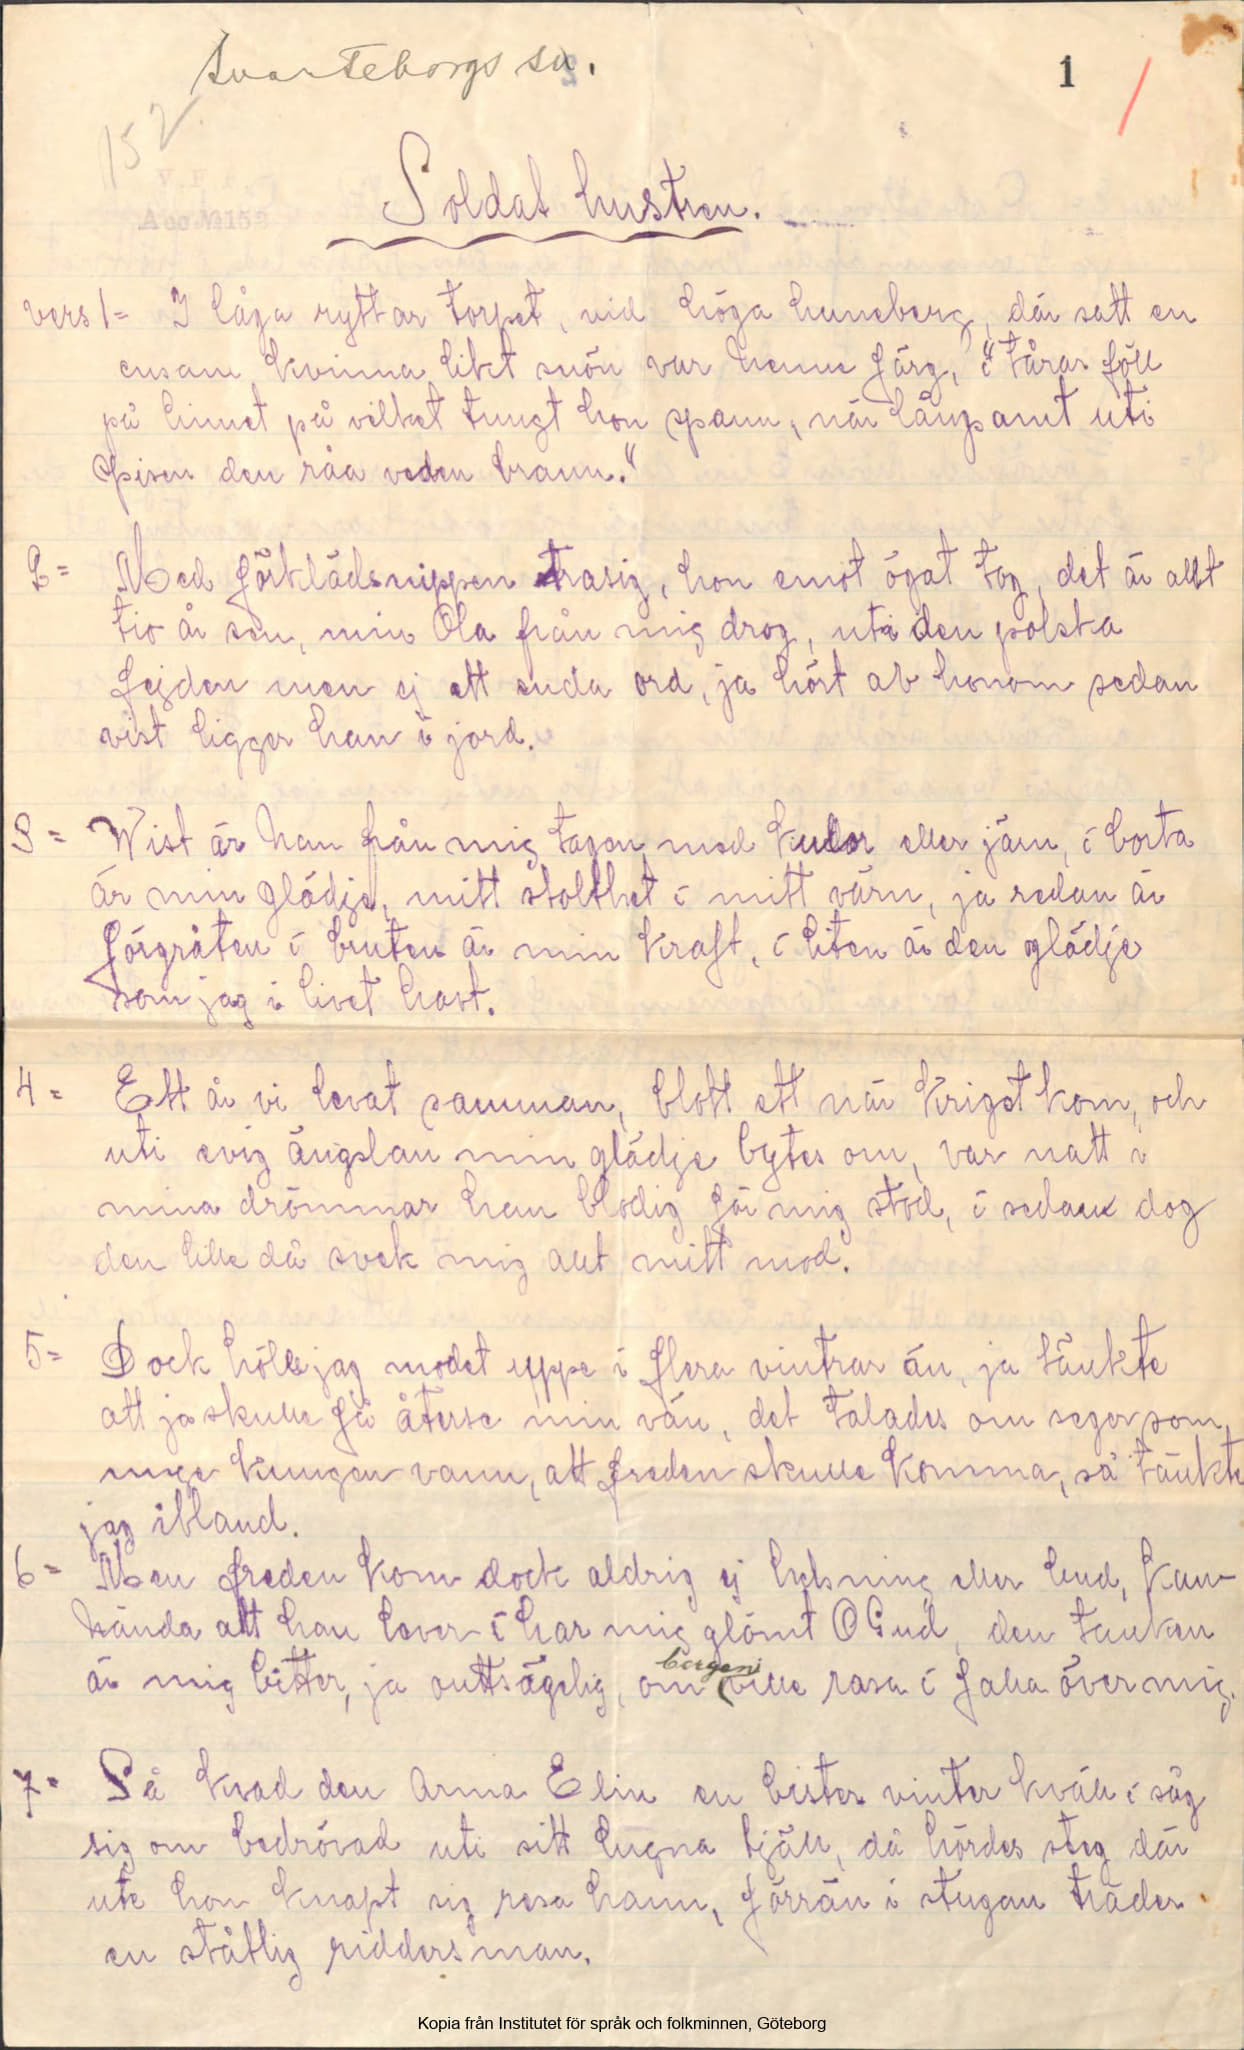 Svarteborgs sn.
1
152.
Soldat hustrun.
vers 1= I låga ryttar torpet, vid höga huneberg, där satt en
ensam kvinna likt snön var henne färg, "i tårar föll
på linnet på vilket tungt hon spann, när långsamt uti
spisen den råa veden brann."
2= Med förklädsnippen trasig, hon emot ögat tog, det är allt
tio år sen, min Ola från mig drog, uti den polska
fejden men ej ett enda ord, ja hört av honom sedan
vist ligger han i jord.
3= Wist är han från mig tagen med kulor eller järn, i borta
är min glädje, mitt stolthet i mitt värn, ja redan är
förgråten i bruten är min kraft, i liten är den glädje
som jag i livet havt.
4= Ett år vi levat samman, blott ett när krigst kom, och
uti evig ängslan min glädje bytes om, var natt i
mina drömmar han blodig för mig stod, i sedan dog
den lille då svek mig allt mitt mod.
5= Dock hölls jag modet uppe i flera vintrar än, ja tänkte
att ja skulle få återse min vän, det talades om seger som
unge kungen vann, att freden skulle komma, så tänkte
jag ibland.
6= Men freden kom dock aldrig ej helsning eller bud, kan
hända att han lever i har mig glömt O Gud, den tanken
är mig bitter, ja outtsägelig, om bergen ville rasa i falla över mig.
7= Så kvad den arma Elin en bister vinter kväll i såg
sig om bedrövad uti sitt lugna tjäll, då hördes steg där
ute hon knapt sig resa hann, förrän i stugan träder
en ståtlig riddersman.
Kopia från Institutet för språk och folkminnen, Göteborg